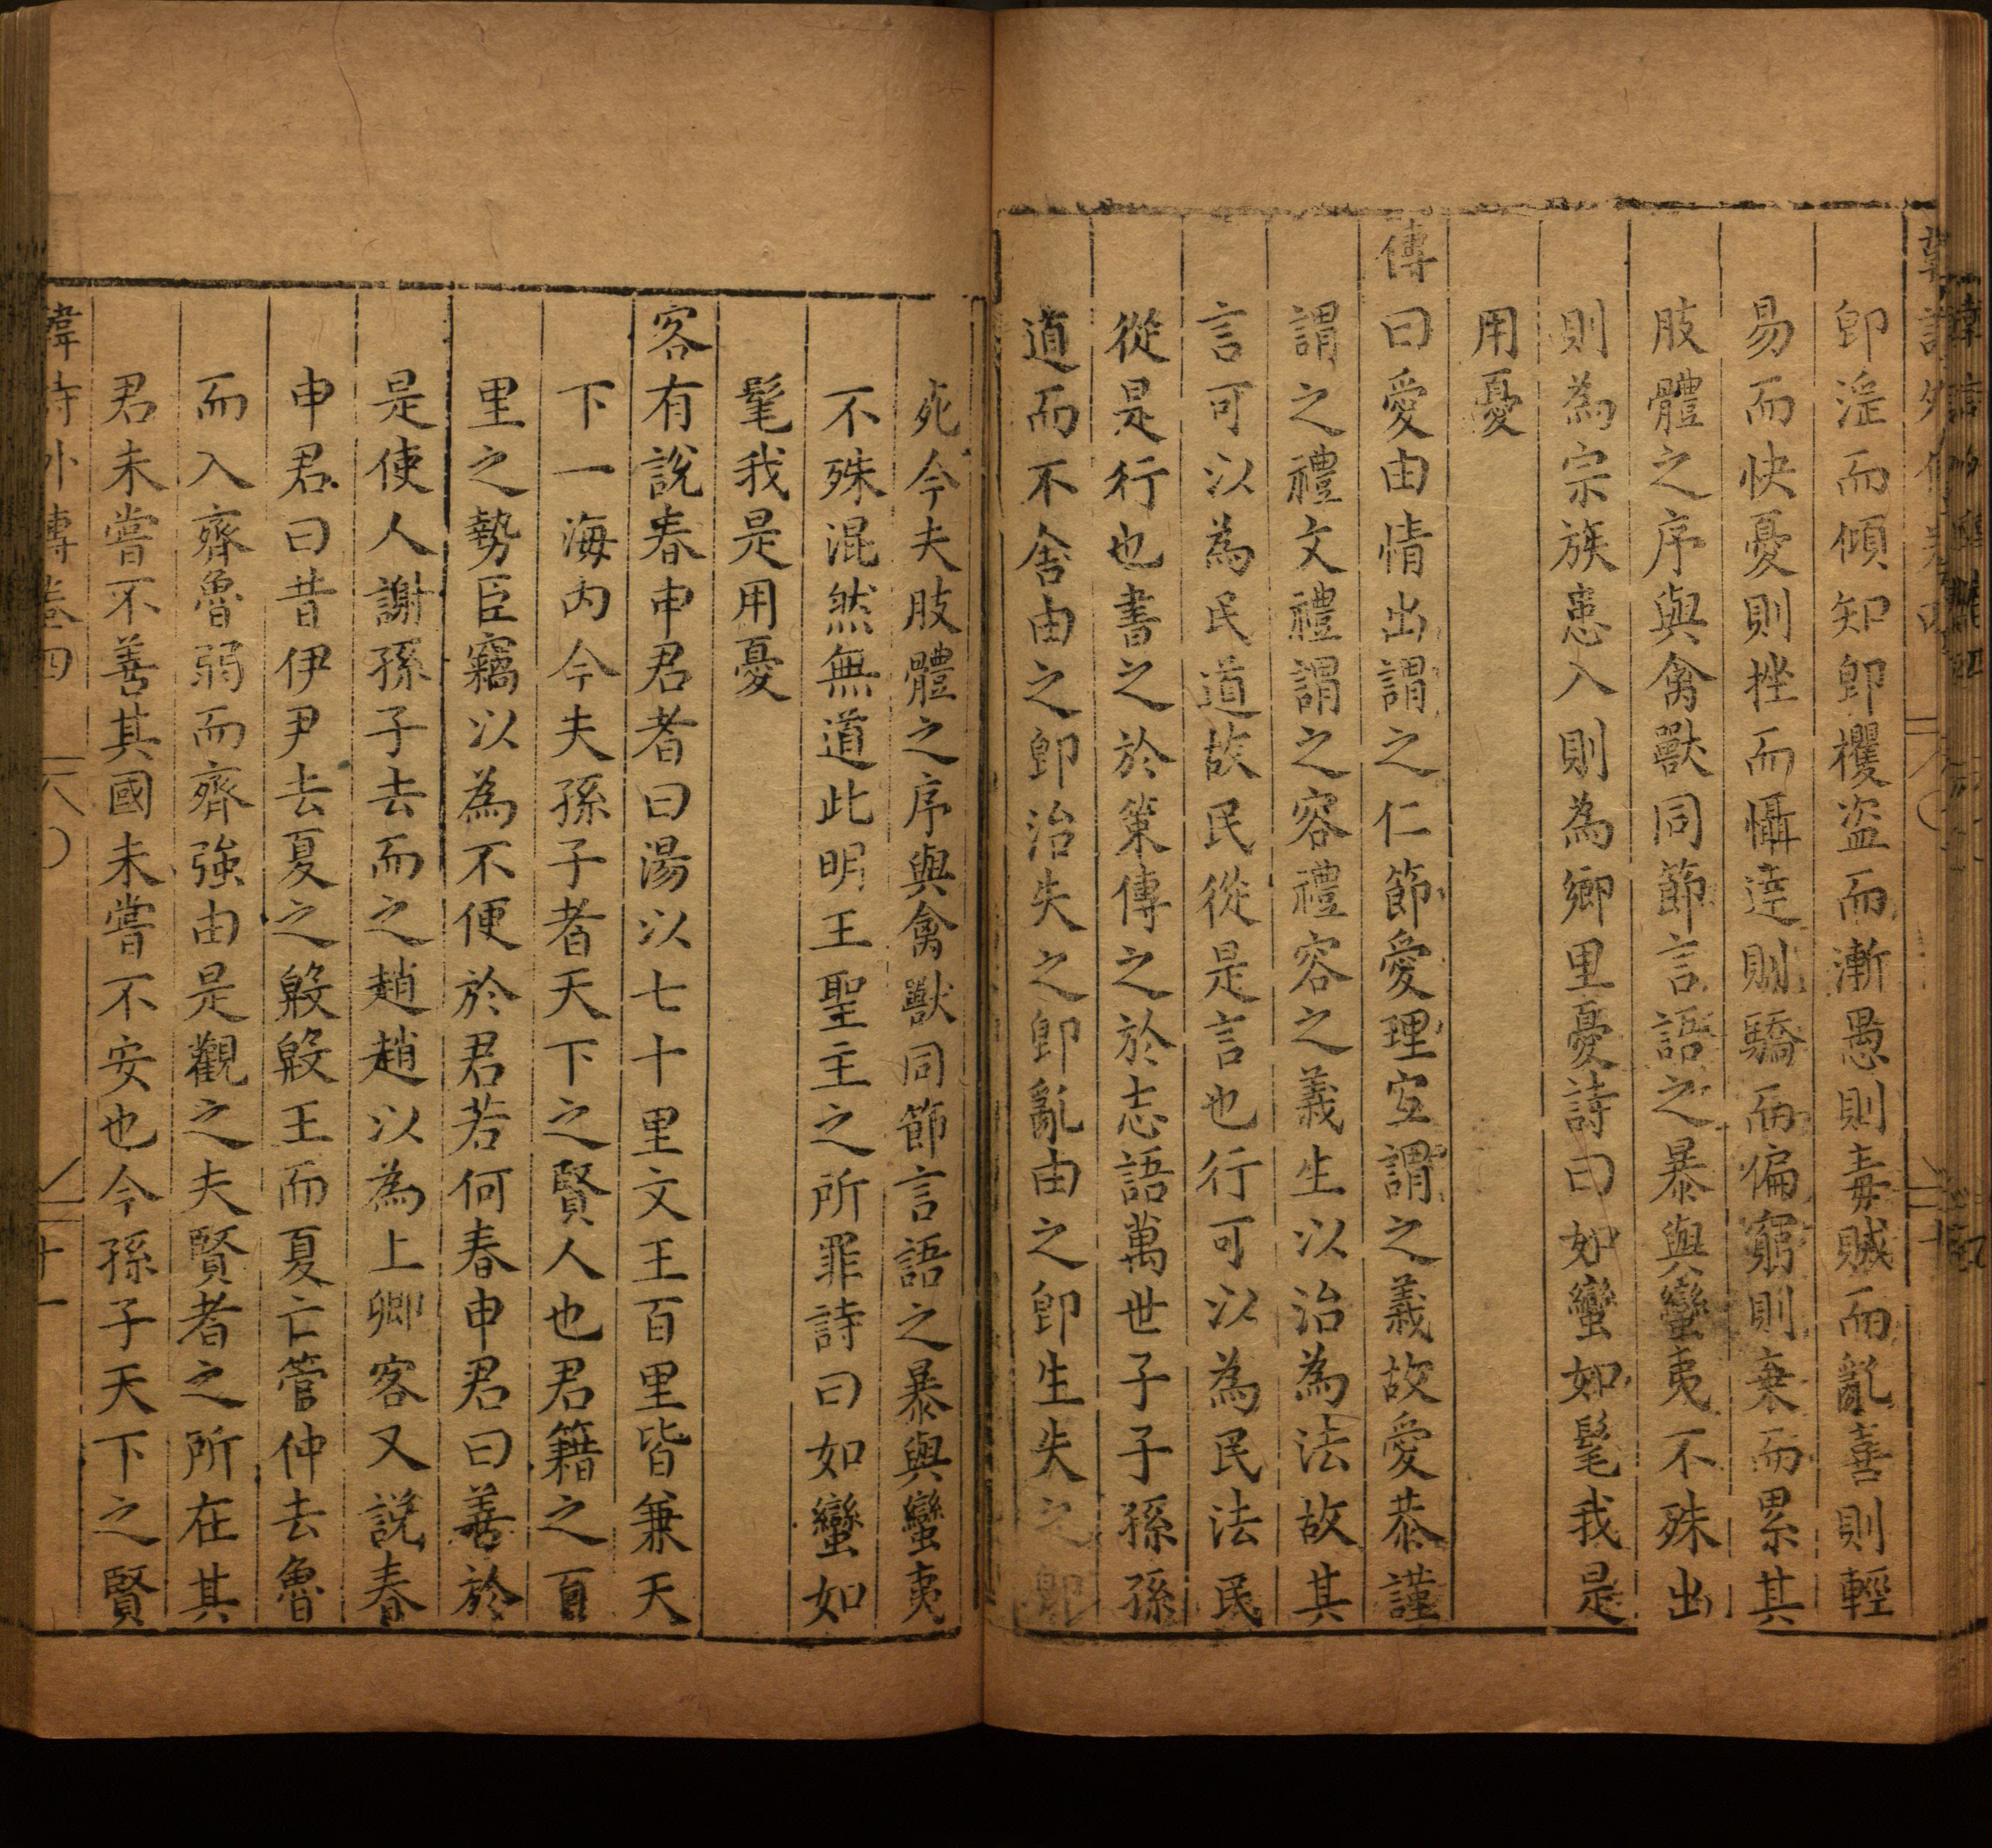 即淫而傾知即攫盜而漸愚則毒賊而亂喜則輕
易而快憂則挫而懾達則驕而偏窮則棄而累其
肢體之序與禽獸同節言語之暴與蠻夷不殊出
則為宗族患入則為鄉里憂詩曰如蠻如髦我是
用憂
傳曰愛由情出謂之仁節愛理宜謂之義故愛恭謹
謂之禮文禮謂之容禮容之義生以治為法故其
言可以為民道故民從是言也行可以為民法民
從是行也書之於策傳之於志語萬世子子孫孫
道而不舍由之即治失之即亂由之即生失之即
死今夫肢體之序與禽獸同節言語之暴與蠻夷
不殊混然無道此明王聖主之所罪詩曰如蠻如
髦我是用憂
客有說春申君者曰湯以七十里文王百里皆兼天
下一海內今夫孫子者天下之賢人也君籍之百
里之勢臣竊以為不便於君若何春申君曰善於
是使人謝孫子去而之趙趙以為上卿客又說春
申君曰昔伊尹去夏之殷殷王而夏亡管仲去魯
而入齊魯弱而齊強由是觀之夫賢者之所在其
君未嘗不善其國未嘗不安也今孫子天下之賢
韓詩外傳卷四 十一